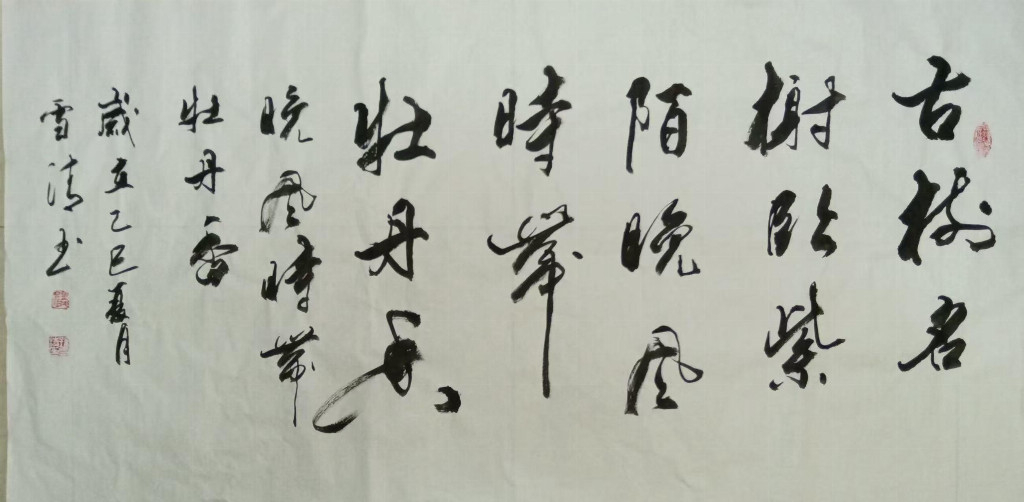 古樹名
榭臥紫
陌晚風
時帶
牡丹香
晚風時帶
牡丹香
歲在乙巳夏月
雪清書